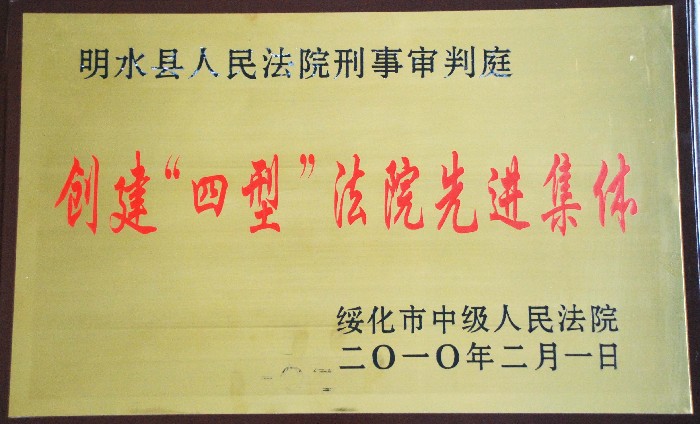 明水县人民法院刑事审判庭
创建“四型”法院先进集体
绥化市中级人民法院
二〇一〇年二月一日